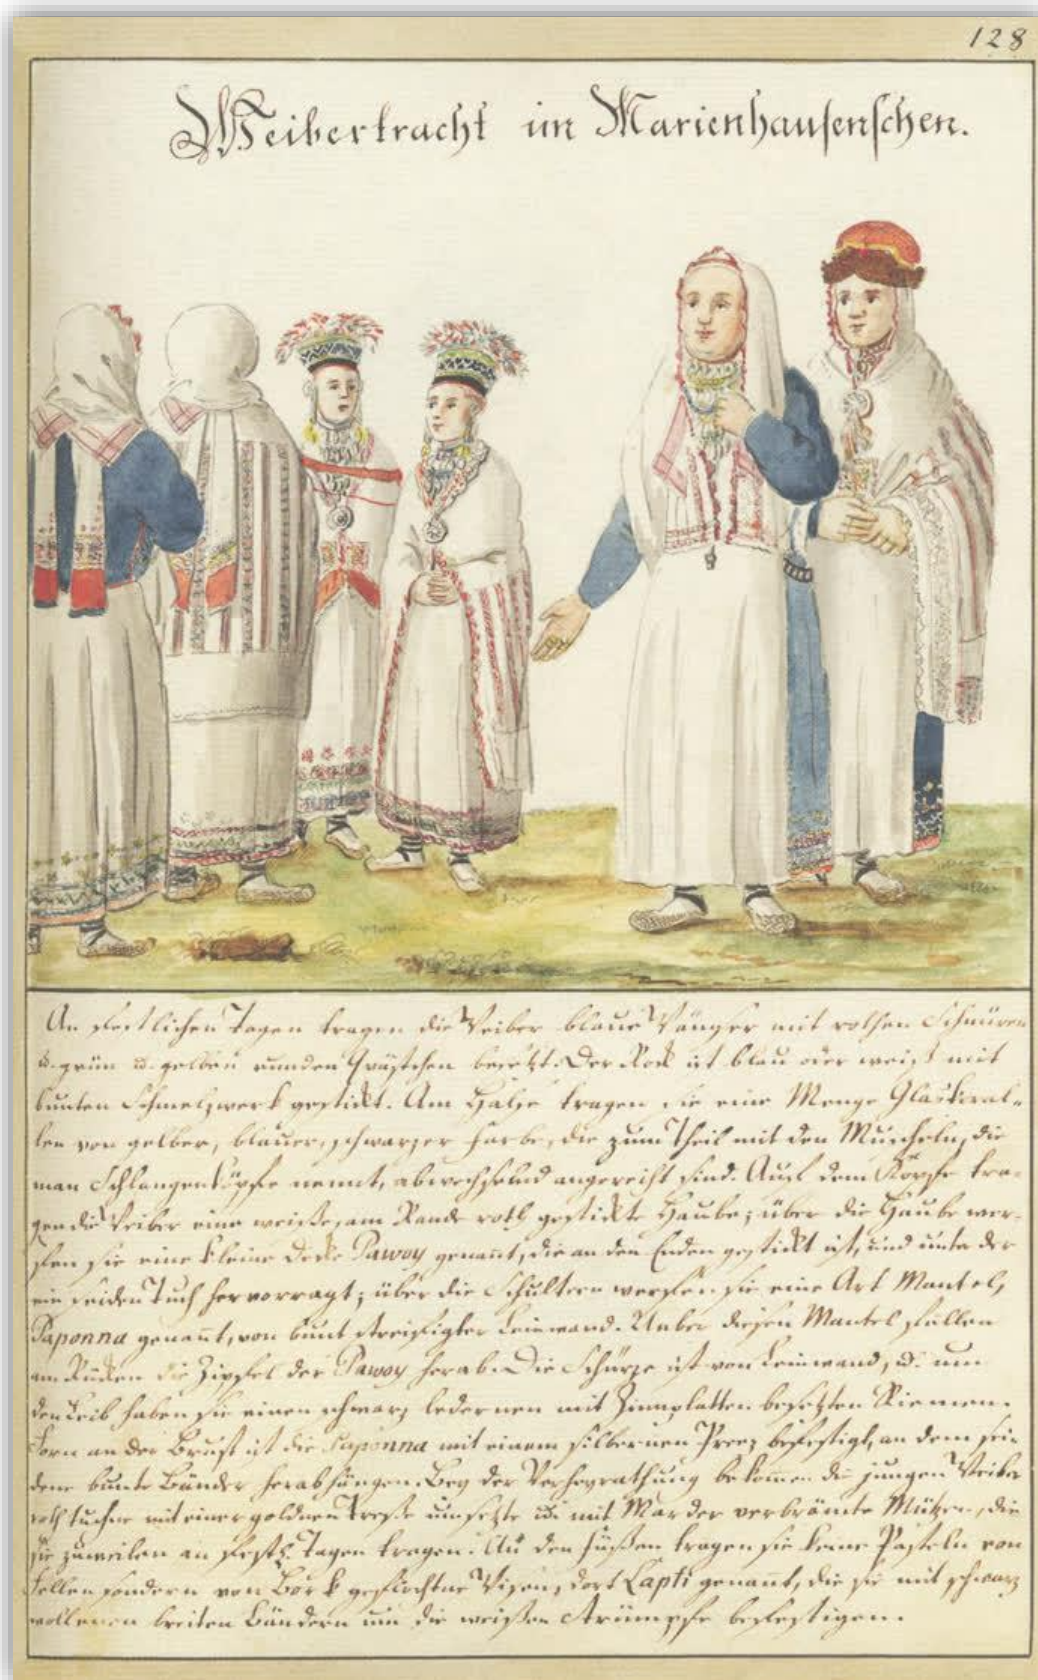 128
Weibertracht im Marienhausenschen.
An festlichen Tagen tragen die Weiber blaue Wämser mit rothen Schnüren
u. grün u. gelben runden besetzt. Der Rock ist blau oder weiß mit
bunten Schmelzwerk gestickt. Am Halse tragen sie eine Menge Glaskoral-
len von gelber, blauer, schwarzer Farbe, die zum Theil mit den Muscheln, die
man Schlangenköpfe nennt, abwechselnd angereiht sind. Auf dem Kopfe tra-
gen die Weiber eine weiße, am Rande roth gestickte Haube; über die Haube wer-
fen sie eine kleine Decke Pawoy genannt, die an den Enden gestickt ist, und unter der
ein seiden Tuch hervorragt; über die Schultern werfen sie eine Art Mantel,
Paponna genannt, von bunt streifigter Leinwand. Ueber diesen Mantel fallen
am Rücken die Zipfel der Pawoy herab. Die Schürze ist von Leinwand, u. um
den Leib haben sie einen schwarz ledernen mit Zinnplatten besetzten Riemen.
Vorn an der Brust ist die Paponna mit einem silbernen Preez befestigt, an dem sei-
dene bunte Bänder herabhängen. Bey der Verheyrathung bekommen die jungen Weiber
roth tuchne mit einer goldnen Tresse umsetzte u. mit Marder verbrämte Mützen, die
sie zuweilen an festl. Tagen tragen. An den Füßen tragen sie keine Pasteln von
Fellen sondern von Bork geflochtne Wisen, dort Lapti genannt, die sie mit schwarz
wollenen breiten Bändern um die weißen Strümpfe befestigen.